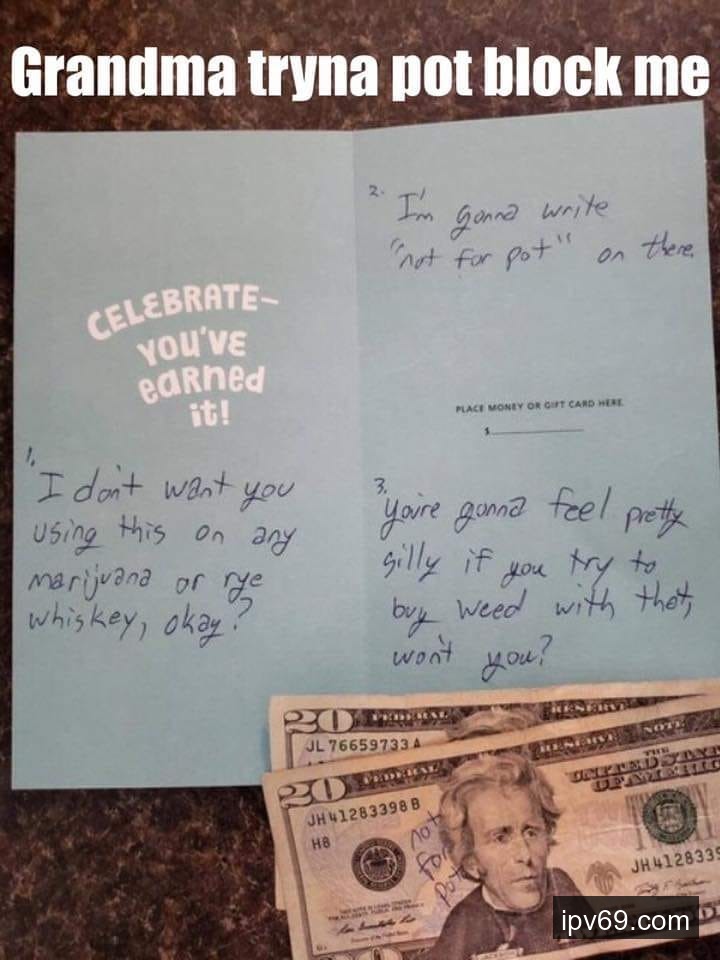 Grandma tryna pot block me
CELEBRATE-
YOU'VE
eaRned
it!
1.
I don't want you
using this on any
marijuana or rye
whiskey, okay?
2.
I'm gonna write
"not for pot" on there.
PLACE MONEY OR GIFT CARD HERE
$
3.
You're gonna feel pretty
silly if you try to
buy weed with that,
won't you?
20 FEDERAL RESERVE NOTE
JL 76659733 A
20 FEDERAL RESERVE NOTE
THE
UNITED STATES
OF AMERICA
JH 41283398 B
H8
not
for
pot
JH 4128339
ipv69.com